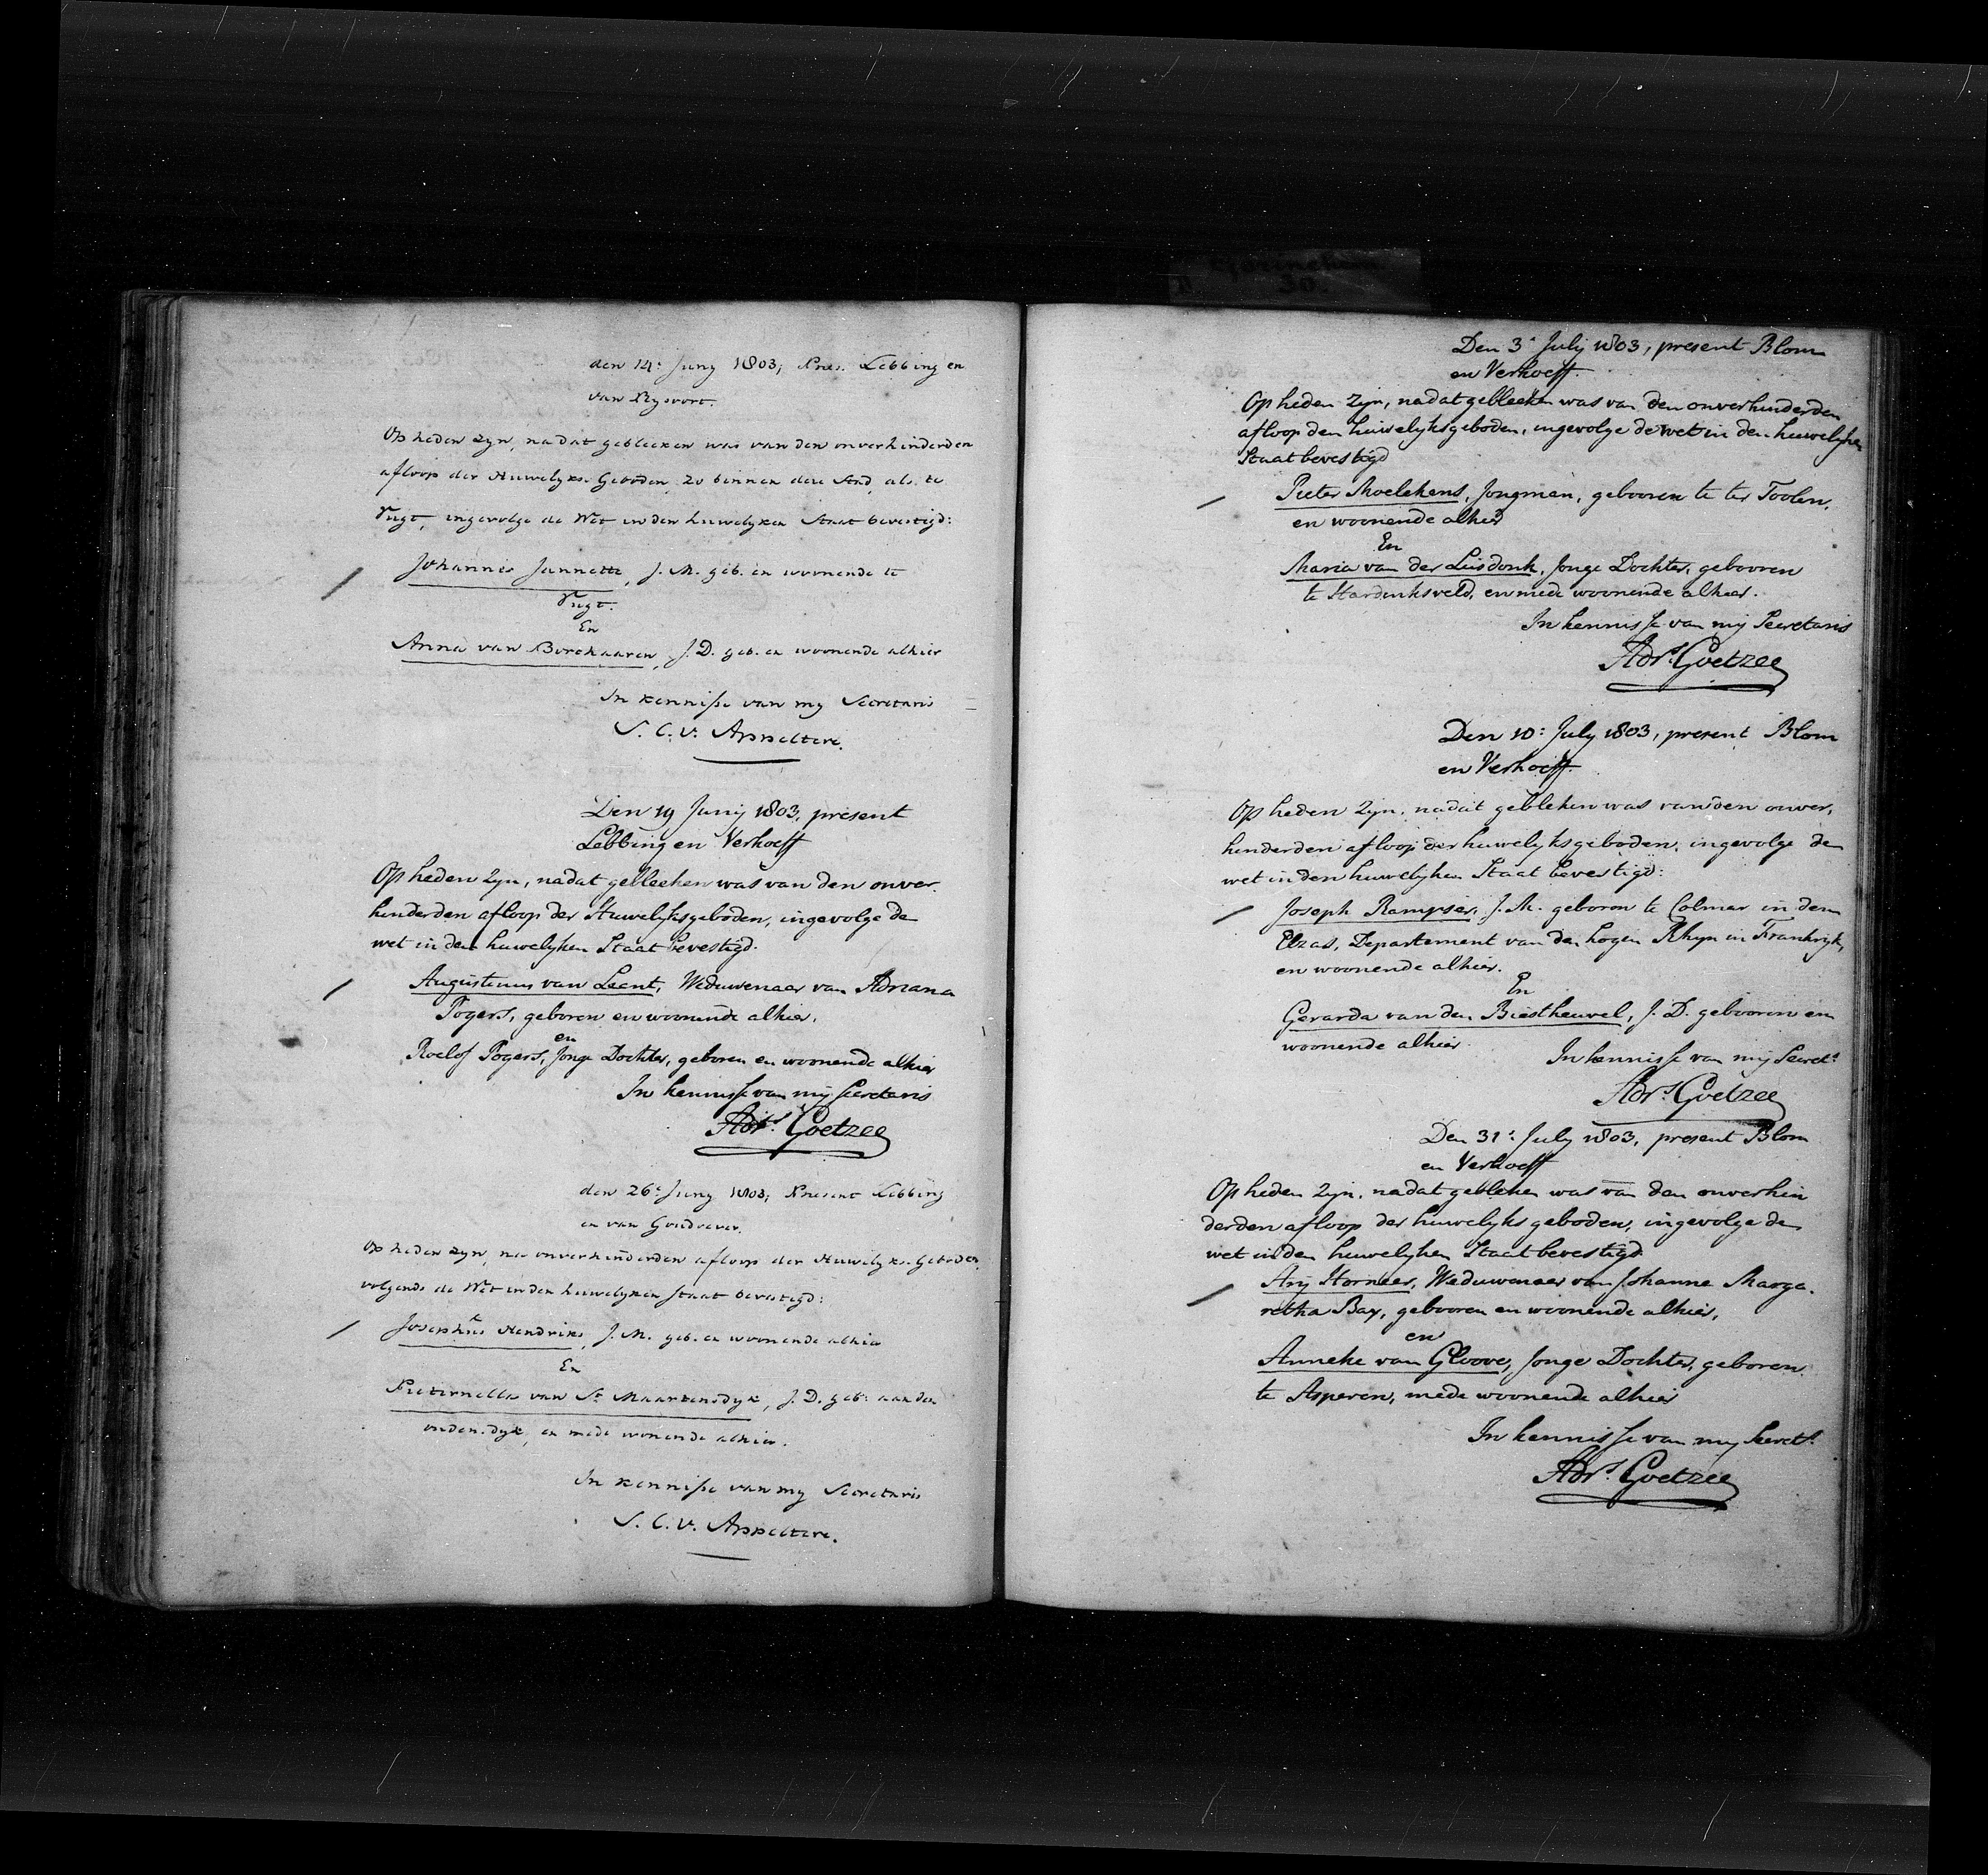 Gorinchem
30.
den 14: Juny 1803; Pres. Lebbing en
van Rysoort.
Op heden zyn, nadat gebleeken was van den onverhinderden
afloop der Huwelyks-Geboden, zo binnen deze Stad, als te
Vugt, ingevolge de Wet in den huwelyken Staat bevestigd:
Johannes Jannette, J. M. geb. en woonende te
Vugt.
En
Anna van Borchaaren, J. D. geb. en woonende alhier
In kennisse van my Secretaris
S. C. V. Appeltere.
Den 19 Junij 1803, present
Lebbing en Verhoeff
Op heden Zyn, nadat gebleeken was van den onver-
hinderden afloop der Huwelyksgeboden, ingevolge de
wet in den huwelyken Staat bevestigd.
Augustinus van Leent, Weduwenaar van Adriana
Pogers, geboren en woonende alhier.
en
Roelof Pogers, Jonge Dochter, geboren en woonende alhier
In kennisse van mij Secretaris
Adrs. Goetzee
den 26e Juny 1803; Present Lebbing
en van Goudoever.
Op heden zyn, na onverhinderden afloop der Huwelyks-Geboden,
volgends de Wet in den huwelyken staat bevestigd:
Josephus Hendriks, J. M. geb. en woonende alhier
En
Pieternella van St. Maartensdyk, J. D. geb: aan den
ouden-dyk, en mede wonende alhier.
In kennisse van my Secretaris
S. C. V. Appeltere.
Den 3e July 1803, present Blom
en Verhoeff.
Op heden Zyn, nadat gebleeken was van den onverhinderden
afloop den huwelyksgeboden, ingevolge de wet in den huwelyken
Staat bevestigd
Pieter Moelekens, Jongman, gebooren te ter Toolen,
en woonende alhier
En
Maria van der Luisdonk, Jonge Dochter, gebooren
te Hardinksveld, en mede woonende alhier.
In kennisse van mij Secretaris
Adrs. Goetzee
Den 10: July 1803, present Blom
en Verhoeff.
Op heden Zyn, nadat gebleken was van den onver,
hinderden afloop der huwelyksgeboden, ingevolge de
wet in den huwelyken Staat bevestigd:
Joseph Rampser, J. M. geboren te Colmar in den
Elzas, Departement van den hogen Rhyn in Frankryk,
en woonende alhier.
En
Gerarda van den Biestheuvel, J. D. gebooren en
woonende alhier.
In kennisse van mij Secrets.
Adrs. Goetzee
Den 31: July 1803, present Blom
en Verhoeff
Op heden Zyn, nadat gebleken was van den onverhin
derden afloop der huwelyks geboden, ingevolge de
wet in den huwelyken Staat bevestigd.
Arij Horneer, Weduwenaar van Johanne Marga-
retha Bax, gebooren en woonende alhier,
en
Anneke van Gloove, Jonge Dochter, geboren
te Asperen, mede woonende alhier
In kennisse van my Secrets.
Adrs. Goetzee